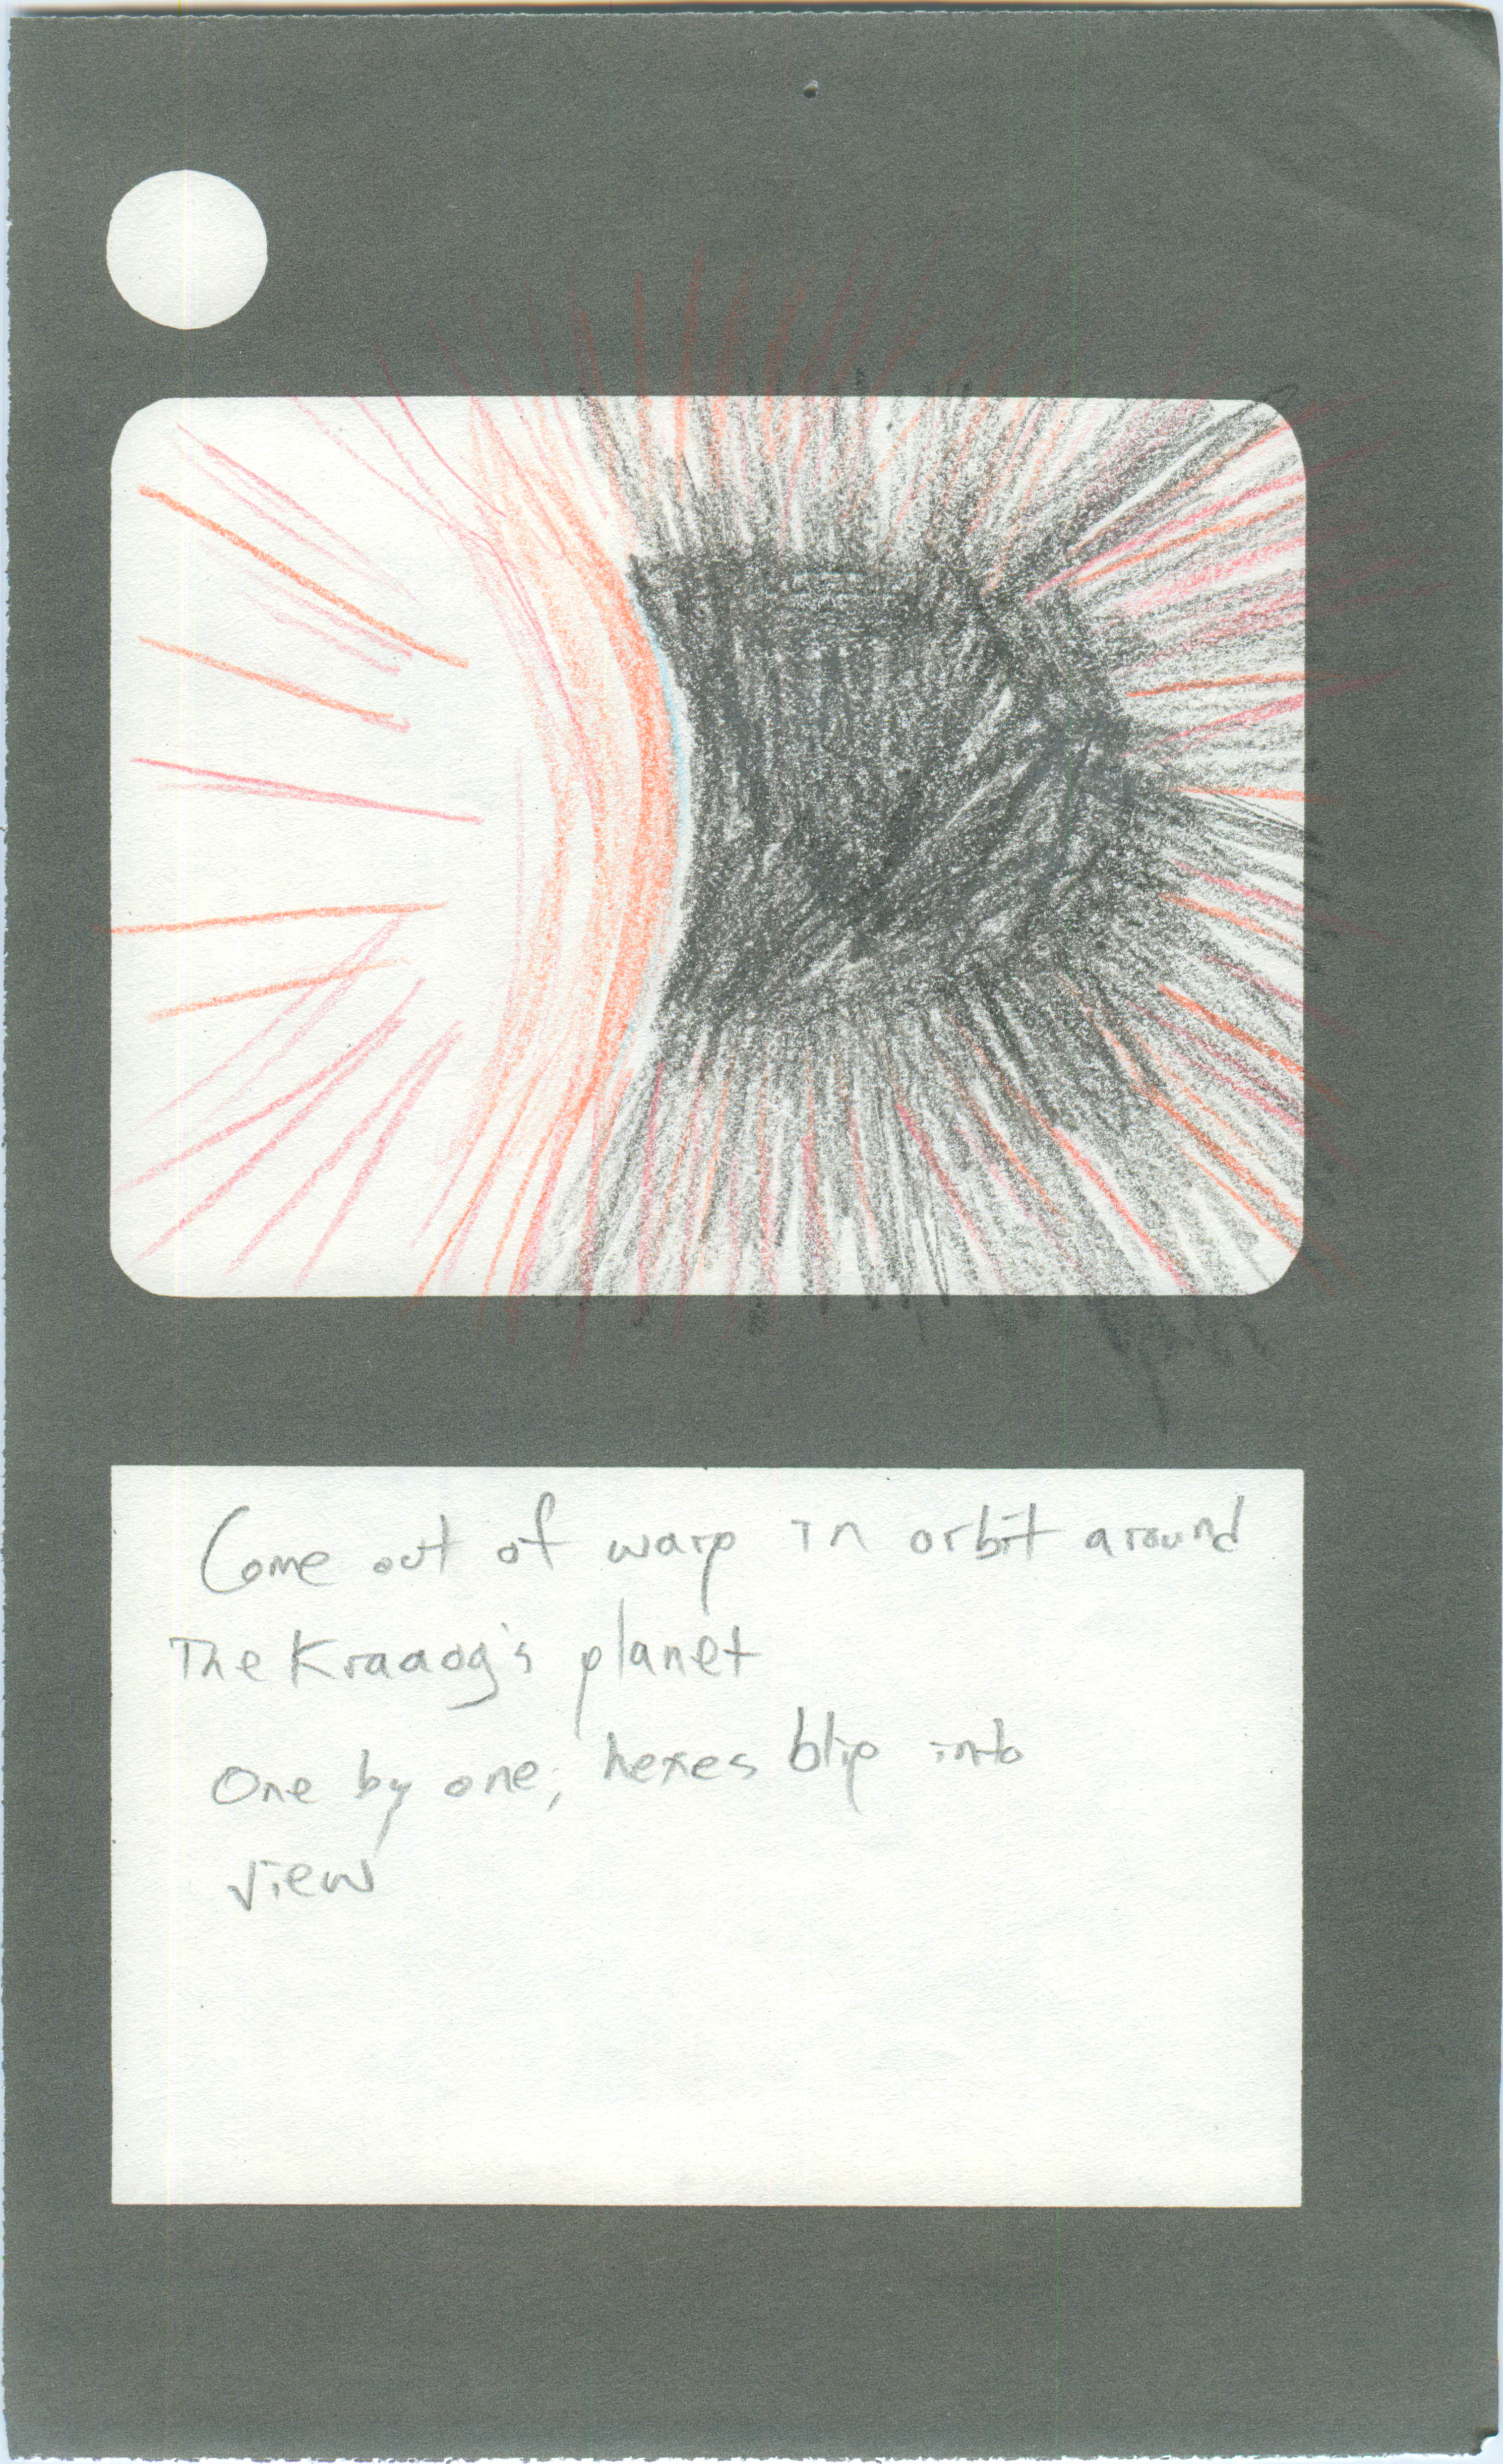 Come out of warp in orbit around
The Kraaog's planet
One by one, hexes blip into
view